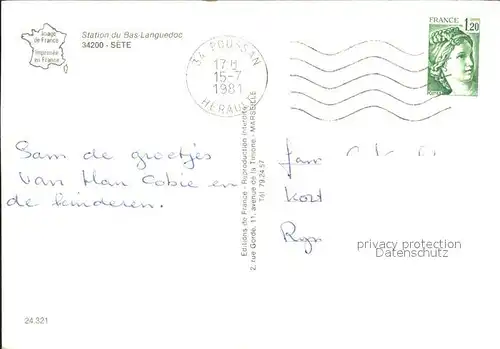 Image
de France
Imprimée
en France
Station du Bas-Languedoc
34200 - SÈTE
34 POUSSAN
17H
15-7
1981
HERAULT
FRANCE
1,20
Editions de France - Reproduction Interdite
2, rue Gorde, 11, avenue de la Timone - MARSEILLE
Tél. 79.24.57
Sam de groetjes
Van Han Cobie en
de kinderen.
fam
Kort
Ryn
privacy protection
Datenschutz
24.321